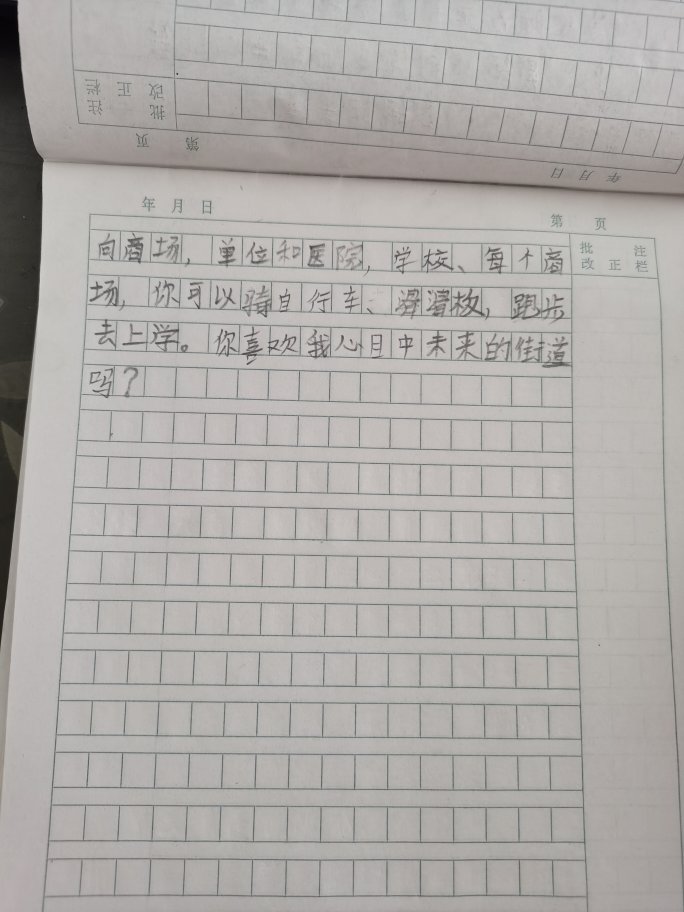 注 正 批
栏 改
第 页
年 月 日
年 月 日
第 页
批 注
改 正 栏
向商场，单位和医院，学校、每个商
场，你可以骑自行车、滑滑板，跑步
去上学。你喜欢我心目中未来的街道
吗？